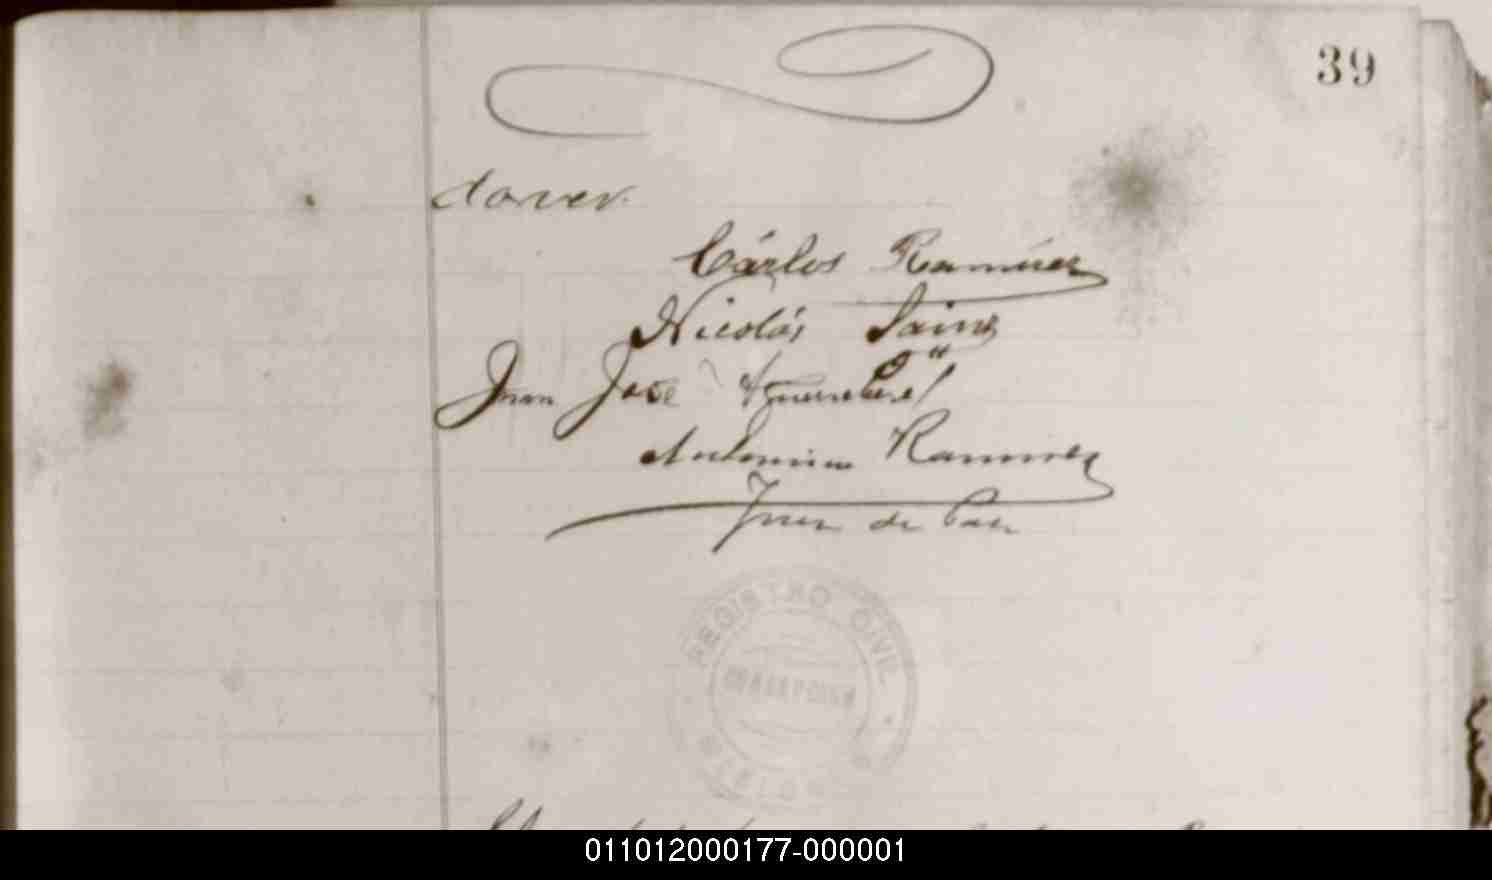 39
daver.
Cárlos Ramírez
Nicolás Sainz
Juan José
Antonino Ramirez
Juan de
REGISTRO CIVIL
011012000177-000001